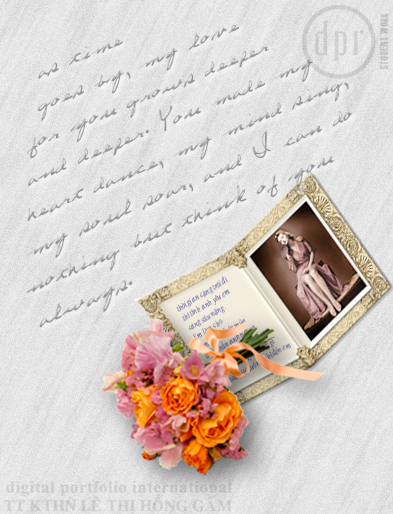 as time
goes by, my love
for you grows deeper
and deeper. You made my
heart dance, my mind sing,
my soul soar, and I can do
nothing but think of you
always.
dpr
STUDENT WORK
thời gian càng trôi đi
thì tình anh yêu em
càng sâu nặng.
digital portfolio international
TT KTHN LÊ THỊ HỒNG GẤM